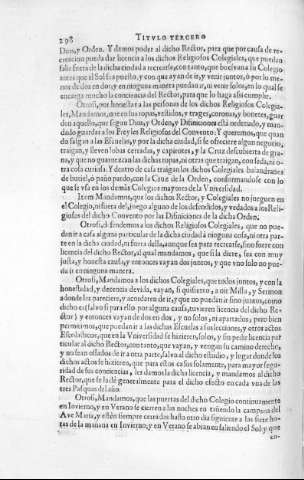 298 TITVLO TERCERO
Don, y Orden. Y damos poder al dicho Rector, para que por causa de re-
creacion pueda dar licencia a los dichos Religiosos Colegiales, que puedan
salir fuera de la dicha ciudad a recrearse, con tanto, que bueluan a su Colegio
antes que el Sol sea puesto, y con que ayan de ir, y venir juntos, ò por lo me-
nos de dos en dos, y en ninguna minera puedan ir, ni venir solos, en lo qual se
encarga mucho la conciencia del Rector, para que lo haga assi cumplir.
Otrosi, por honestar a las personas de los dichos Religiosos Colegia-
les, Mandamos, que en sus ropas, vestidos, y trages, coronas, y bonetes, guar-
den aquello, que segun Dios, y Orden, y Difiniciones està ordenado, y man-
dado guardar a los Freyles Religiosos del Convento. Y queremos, que quan-
do salgan a las Escuelas, y por la dicha ciudad, si se ofreciere algun negocio,
traigan, y lleven lobas cerradas, y capirotes, y la Cruz descubierta de gra-
na, y que no guarnezcan las dichas ropas, ni otras que traigan, con seda, ni o-
tra cosa curiosa. Y dentro de casa traigan los dichos Colegiales balandranes
de buriel, ò paño pardo, con la Cruz de la Orden, conformandose con lo
que se vsa en los demàs Colegios mayores de la Vniversidad.
Item Mandamos, que los dichos Rector, y Colegiales no jueguen en
el Colegio, ni fuera del, juego alguno de los defendidos, y vedados a los Reli-
giosos del dicho Convento por las Difiniciones de la dicha Orden.
Otrosi, defendemos a los dichos Religiosos Colegiales, que no pue-
dan ir a casa alguna particular de la dicha ciudad à ninguna cosa, ni otra par-
te en la dicha ciudad, ni fuera della, aunque sea para recrearse, sino fuere con
licencia del dicho Rector, al qual mandamos, que si la diere, sea con muy
justa, y honesta causa, y entonces vayan dos juntos, y que vno solo no pue-
da ir en ninguna manera.
Otrosi, Mandamos a los dichos Colegiales, que todos juntos, y con la
honestidad, y decencia devida, vayan, si quisieren, a oir Missa, y Sermon
adonde les pareciere, y acordaren de ir, y que no puedan ir sino juntos, como
dicho es (salvo si para ello por alguna causa, tuvieren licencia del dicho Re-
ctor) y entonces vayan de dos en dos, y no solos, ni apartados, pero bien
permitimos, que puedan ir a las dichas Escuelas a sus lecciones, y otros actos
Escolasticos, que en la Vniversidad se hizieren, solos, y sin pedir licencia par-
ticular al dicho Rector, con tanto, que vayan, y vengan su camino derecho,
y no sean ossados de ir a otra parte, salvo al dicho estudio, y lugar donde los
dichos actos se hizieren, que para estos casos solamente, para mayor segu-
ridad de sus conciencias, les damos la dicha licencia, y mandamos al dicho
Rector, que se la dè generalmente para el dicho efecto en cada vna de las
tres Pasquas del año.
Otrosi, Mandamos, que las puertas del dicho Colegio continuamente
en Invierno, y en Verano se cierren a las noches en tañendo la campana del
Ave Maria, y estèn siempre cerradas hasta otro dia siguiente a las siete ho-
ras de la mañana en Invierno, y en Verano se abran en saliendo el Sol, y que
en-